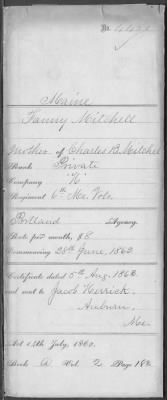 No.
Maine
Fanny Mitchell
Mother of Charles B. Mitchell
Rank Private
Company "K"
Regiment 6th Me. Vols.
Portland Agency.
Rate per month, $8
Commencing 28th June, 1863
Certificate dated 5th Aug. 1868
and sent to Jacob Herrick,
Auburn,
Me.
Act 14th July, 1862.
Book A Vol. 2 Page 188